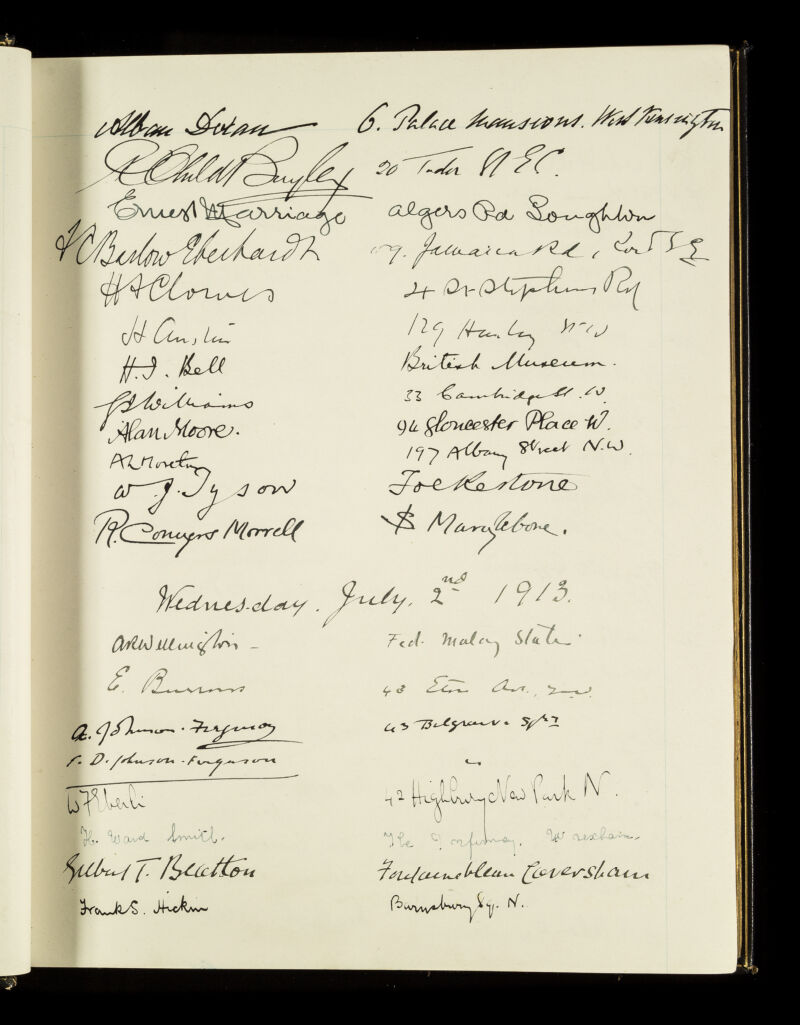 Alban Doran 6. Palace Mansions. West Kensington
R Child Bayley 20 Tudor St EC.
Ernest Marriage Algers Rd Loughton
Barlow Eberhardt Jamaica Rd, S E
H F Clowes 4 St Stephens Rd
H Austin 129 Harley St W
H. I. Bell British Museum.
Williams 33 Cambridge St. W.
Alan Moore. 94 Gloucester Place W.
197 Albany Street N.W.
W. J. Tyson Folkestone
R. Conyers Morrell Marylebone.
Wednesday. July. 2nd 1913.
A R Wellington - Fed. Malay States
E. Burrows 48 Eton Av., N.W.
A. Johnson-Ferguson 43 Belgrave Sqre
D. Johnson-Ferguson "
W F Eberli 42 Highbury New Park N.
H. Ward Smith. The Wrexham.
Gilbert T. Beatton Fontainebleau Caversham
Frank S. Hickin Barnsbury Sq. N.